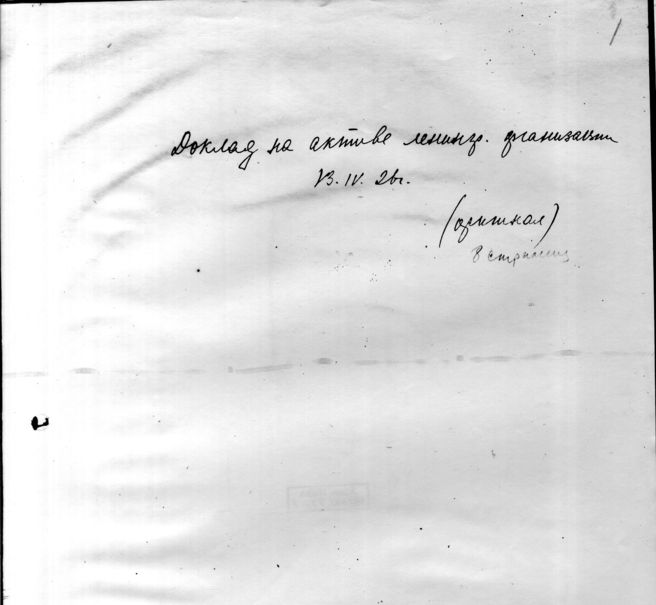 1
Доклад на активе ленингр. организации
13. IV. 26г.
(оригинал)
8 страниц